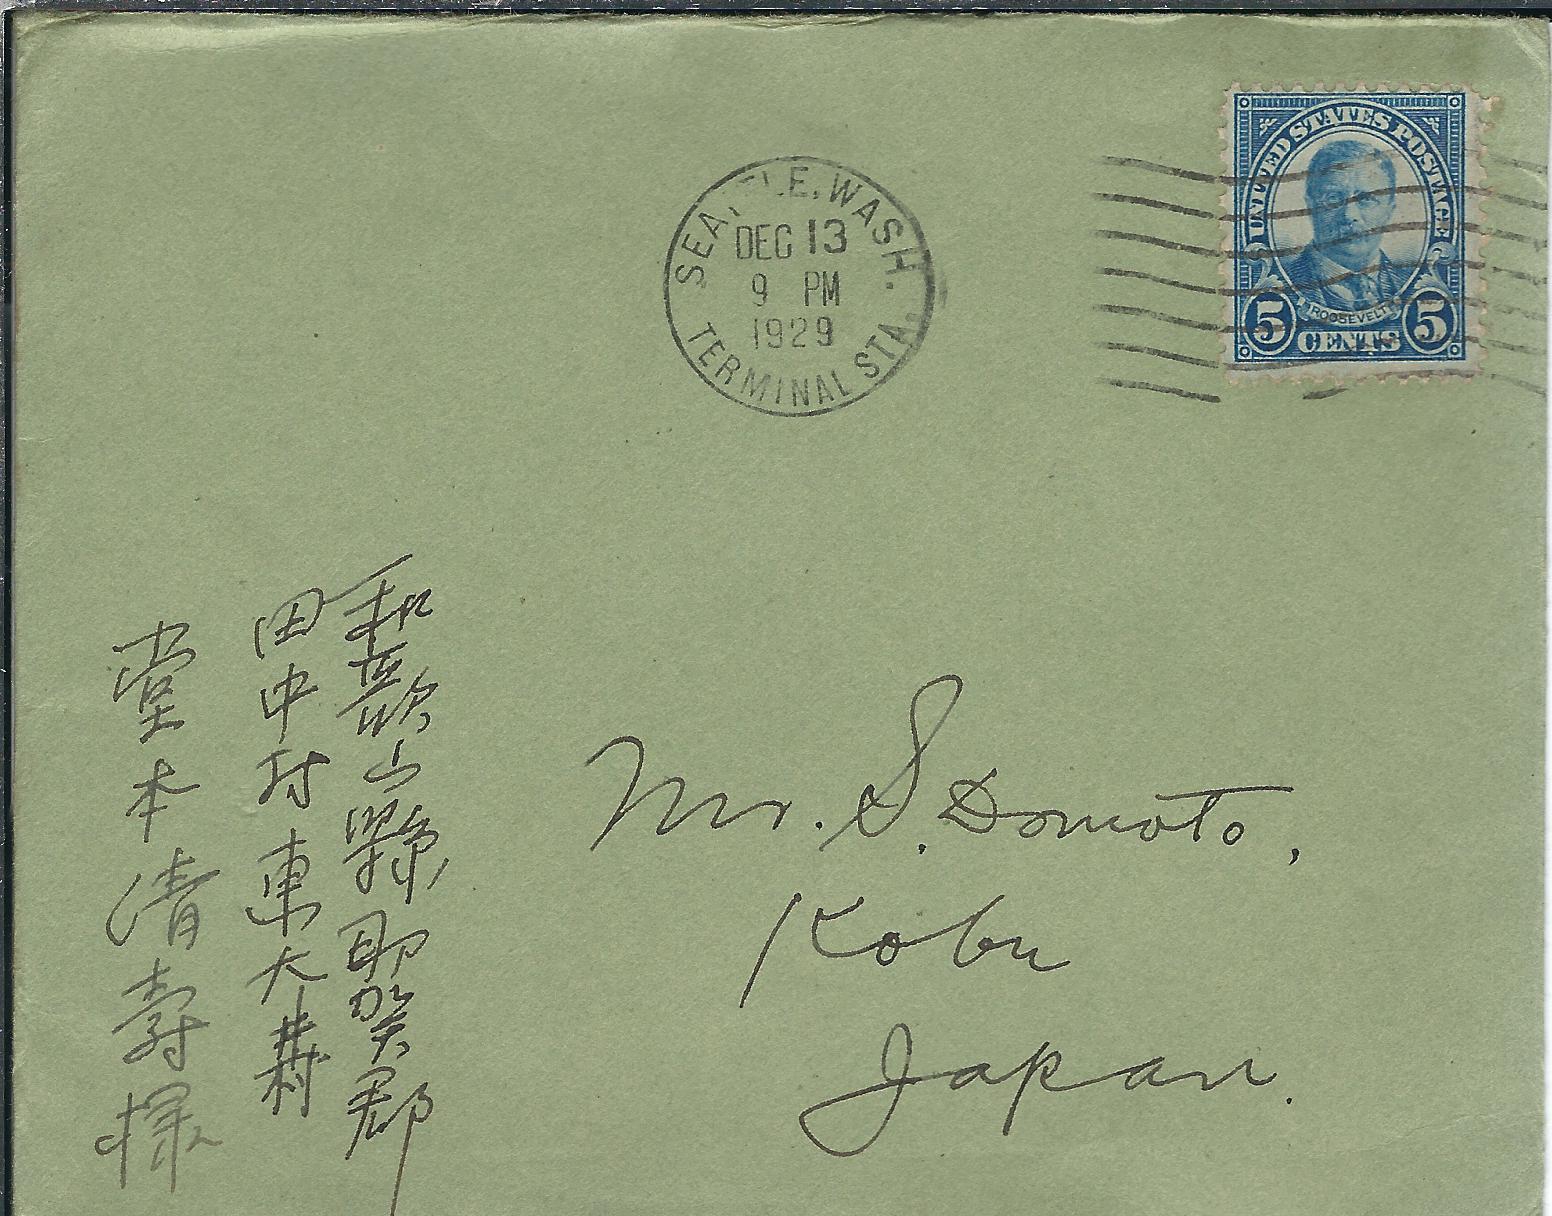 SEATTLE, WASH.
DEC 13
9 PM
1929
TERMINAL STA.
UNITED STATES POSTAGE
ROOSEVELT
5 CENTS 5
和歌山縣那賀郡
田中村東大井村
堂本清寿様
Mr. S. Domoto,
Kobe
Japan.